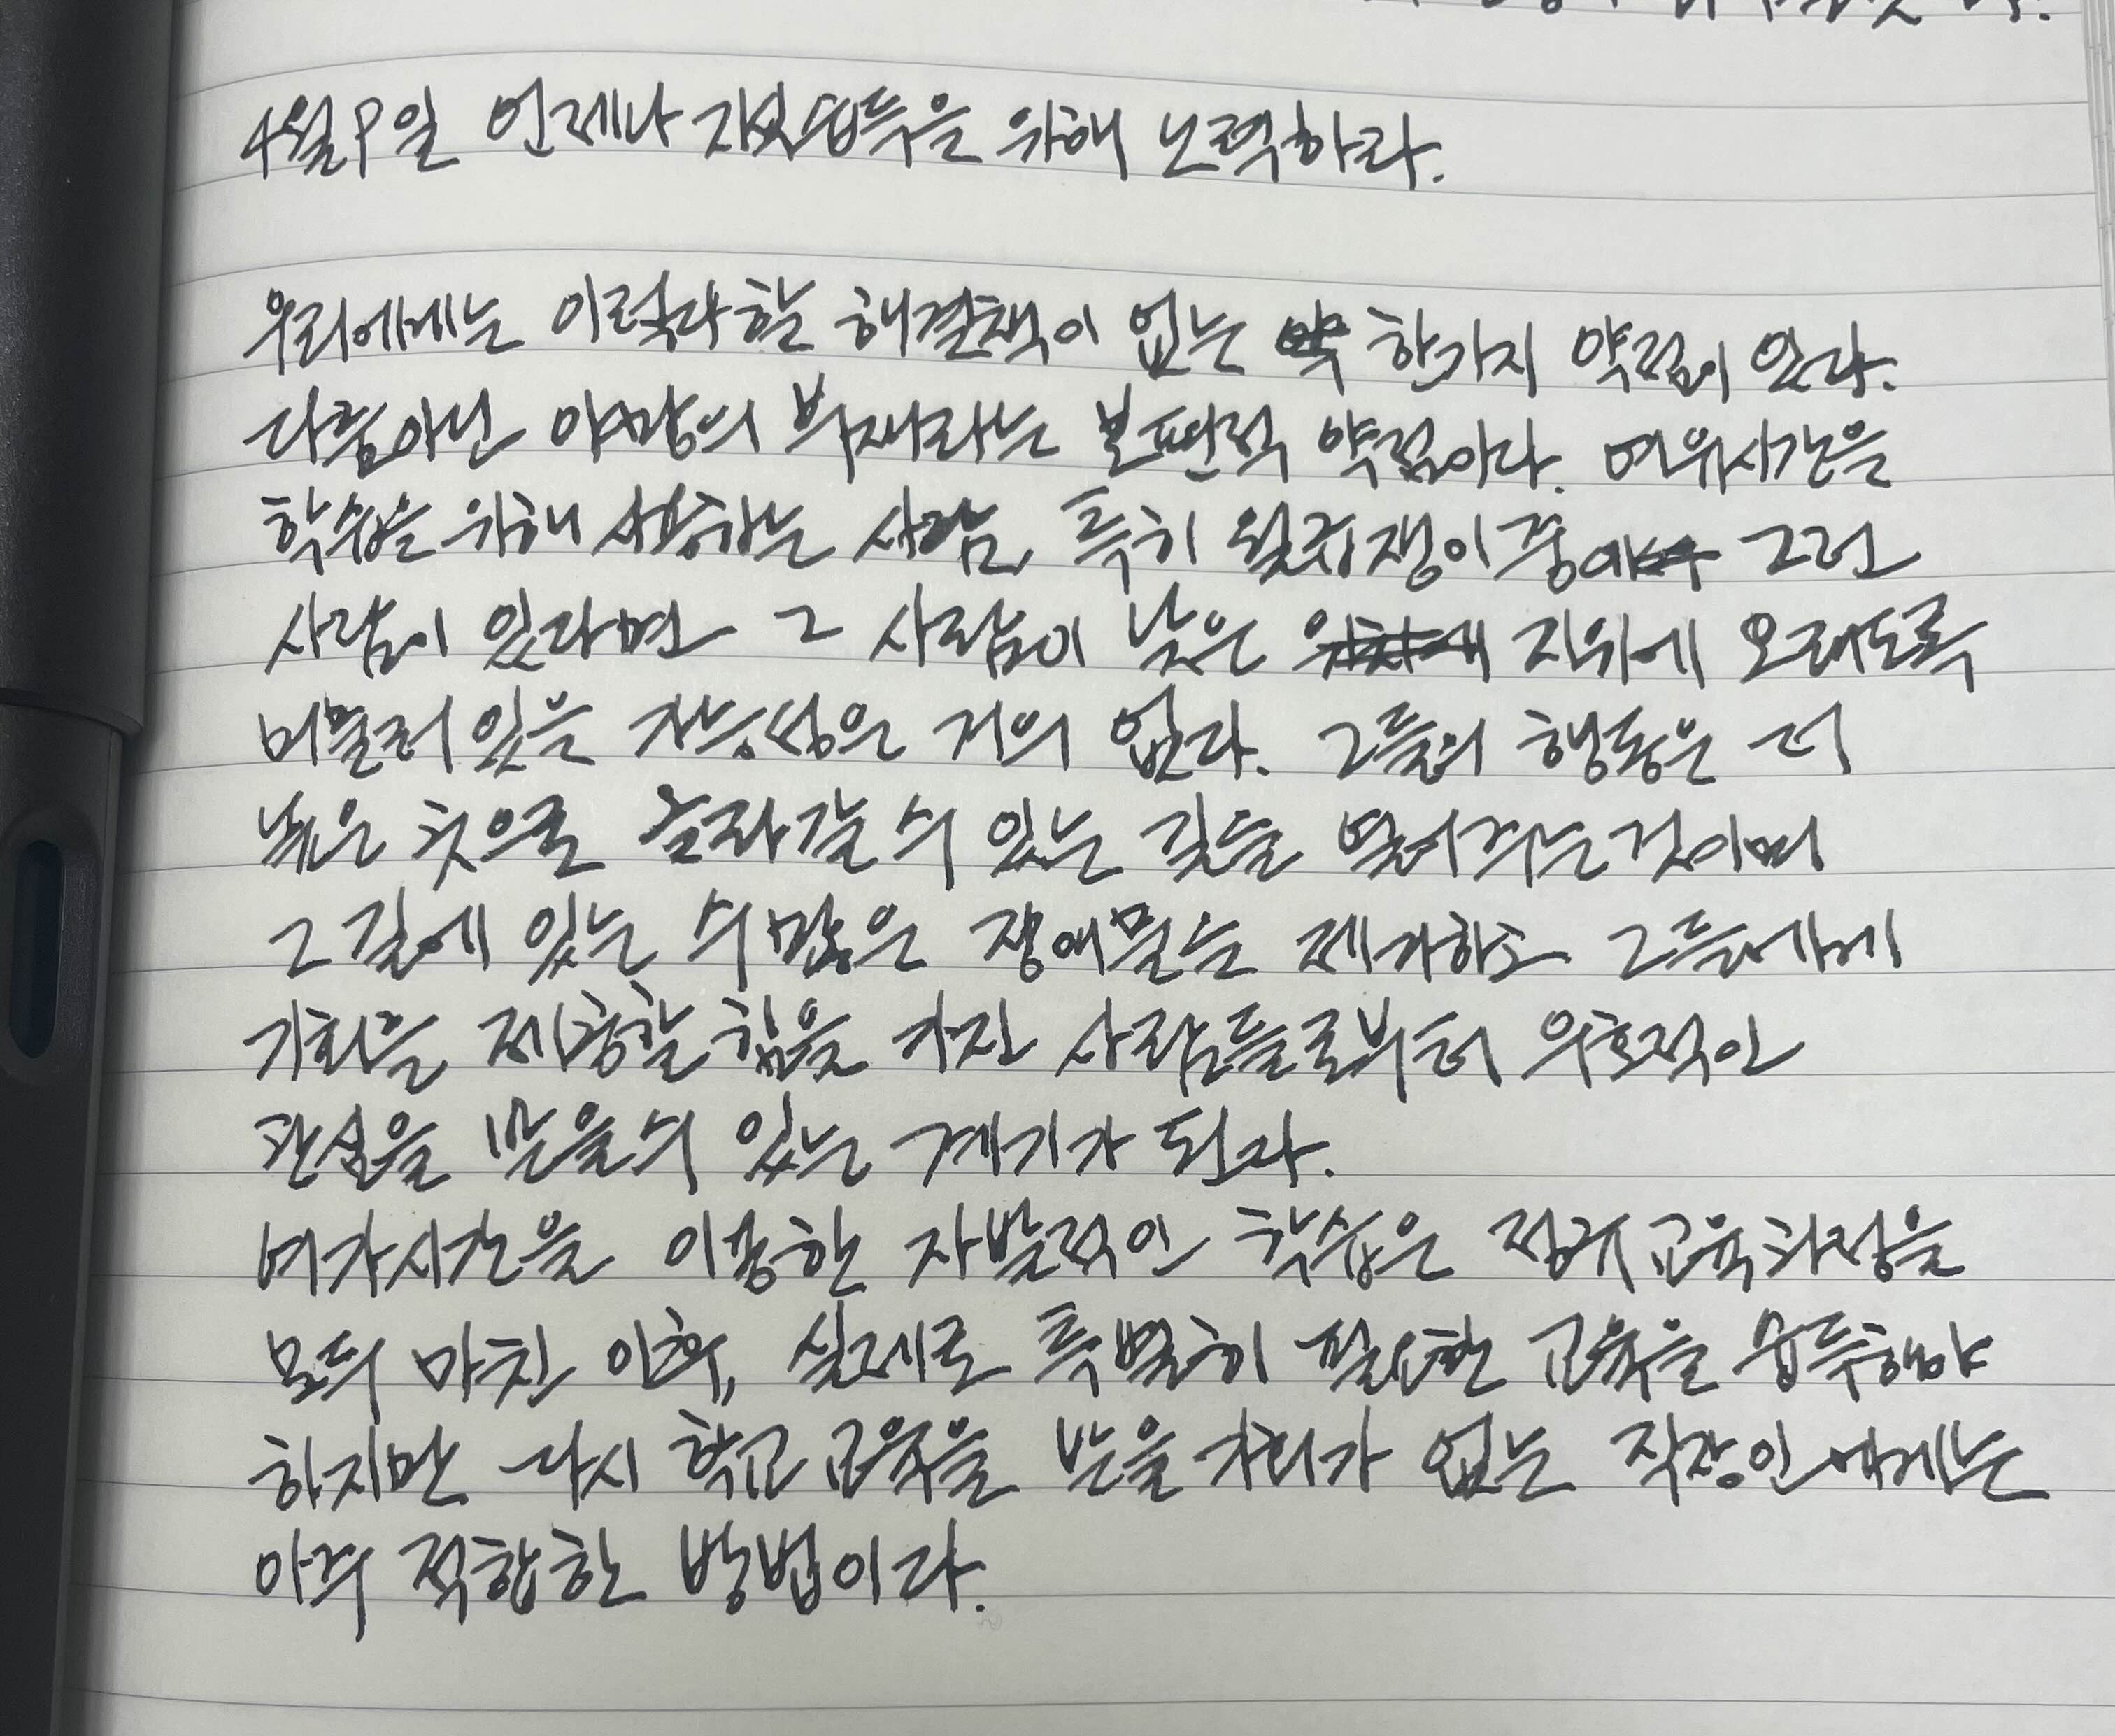 4월9일 언제나 지식습득을 위해 노력하라.
우리에게는 이렇다할 해결책이 없는 한가지 약점이 있다.
다름아닌 야망의 부재라는 보편적 약점이다. 여유시간을
학습을 위해 사용하는 사람, 특히 월급쟁이중에 그런
사람이 있다면 그 사람이 낮은 지위에 오래도록
머물러 있을 가능성은 거의 없다. 그들의 행동은 더
높은 곳으로 올라갈 수 있는 길을 열어주는것이며
그 길에 있는 수많은 장애물을 제거하고 그들에게
기회를 제공할 힘을 가진 사람들로부터 우호적인
관심을 받을수 있는 계기가 된다.
여가시간을 이용한 자발적인 학습은 정규교육과정을
모두 마친 이후, 실제로 특별히 필요한 교육을 습득해야
하지만 다시 학교 교육을 받을 처지가 없는 직장인에게는
아주 적합한 방법이다.